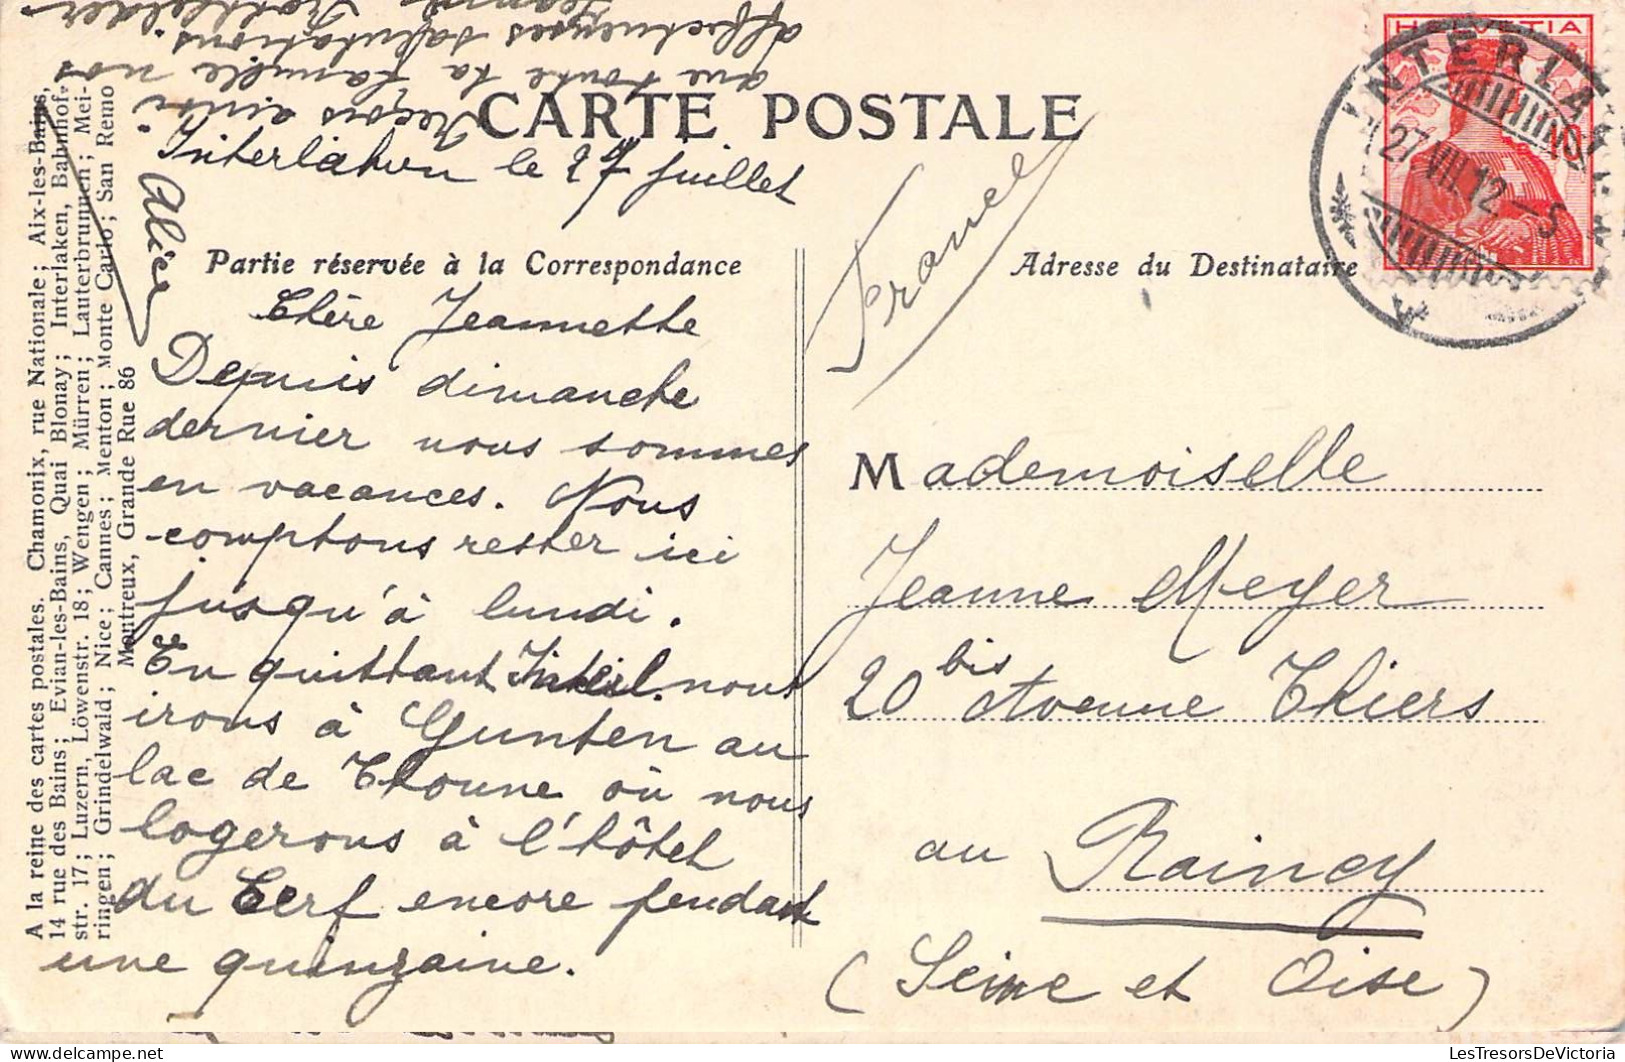 HELVETIA
10
INTERLAKEN
27.VII.12–5
CARTE POSTALE
Interlaken le 27 juillet
Partie réservée à la Correspondance
Adresse du Destinataire
France
Chère Jeannette
Depuis dimanche
dernier nous sommes
en vacances. Nous
comptons rester ici
jusqu'à lundi.
En quittant Interl. nous
irons à Gunten au
lac de Thoune où nous
logerons à l'hôtel
du Cerf encore pendant
une quinzaine.
Reçois ainsi
que toute ta famille nos
affectueuses salutations.
Alice
Mademoiselle
Jeanne Meyer
20 bis Avenue Thiers
au Raincy
(Seine et Oise)
A la reine des cartes postales. Chamonix, rue Nationale; Aix-les-Bains,
14 rue des Bains; Evian-les-Bains, Quai Blonay; Interlaken, Bahnhof-
str. 17; Luzern, Löwenstr. 18; Wengen; Mürren; Lauterbrunnen; Mei-
ringen; Grindelwald; Nice; Cannes; Menton; Monte Carlo; San Remo
Montreux, Grande Rue 86
LesTresorsDeVictoria